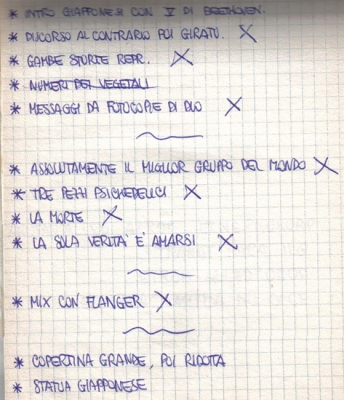 * INTRO GIAPPONESI CON V DI BEETHOVEN.
* DISCORSO AL CONTRARIO POI GIRATO. X
* GAMBE STORTE REPR. X
* NUMERI DEI VEGETALI
* MESSAGGI DA FOTOCOPIE DI DIO X
* ASSOLUTAMENTE IL MIGLIOR GRUPPO DEL MONDO X
* TRE PEZZI PSICHEDELICI X
* LA MORTE X
* LA SOLA VERITA' E' AMARSI X
* MIX CON FLANGER X
* COPERTINA GRANDE, POI RIDOTTA
* STATUA GIAPPONESE